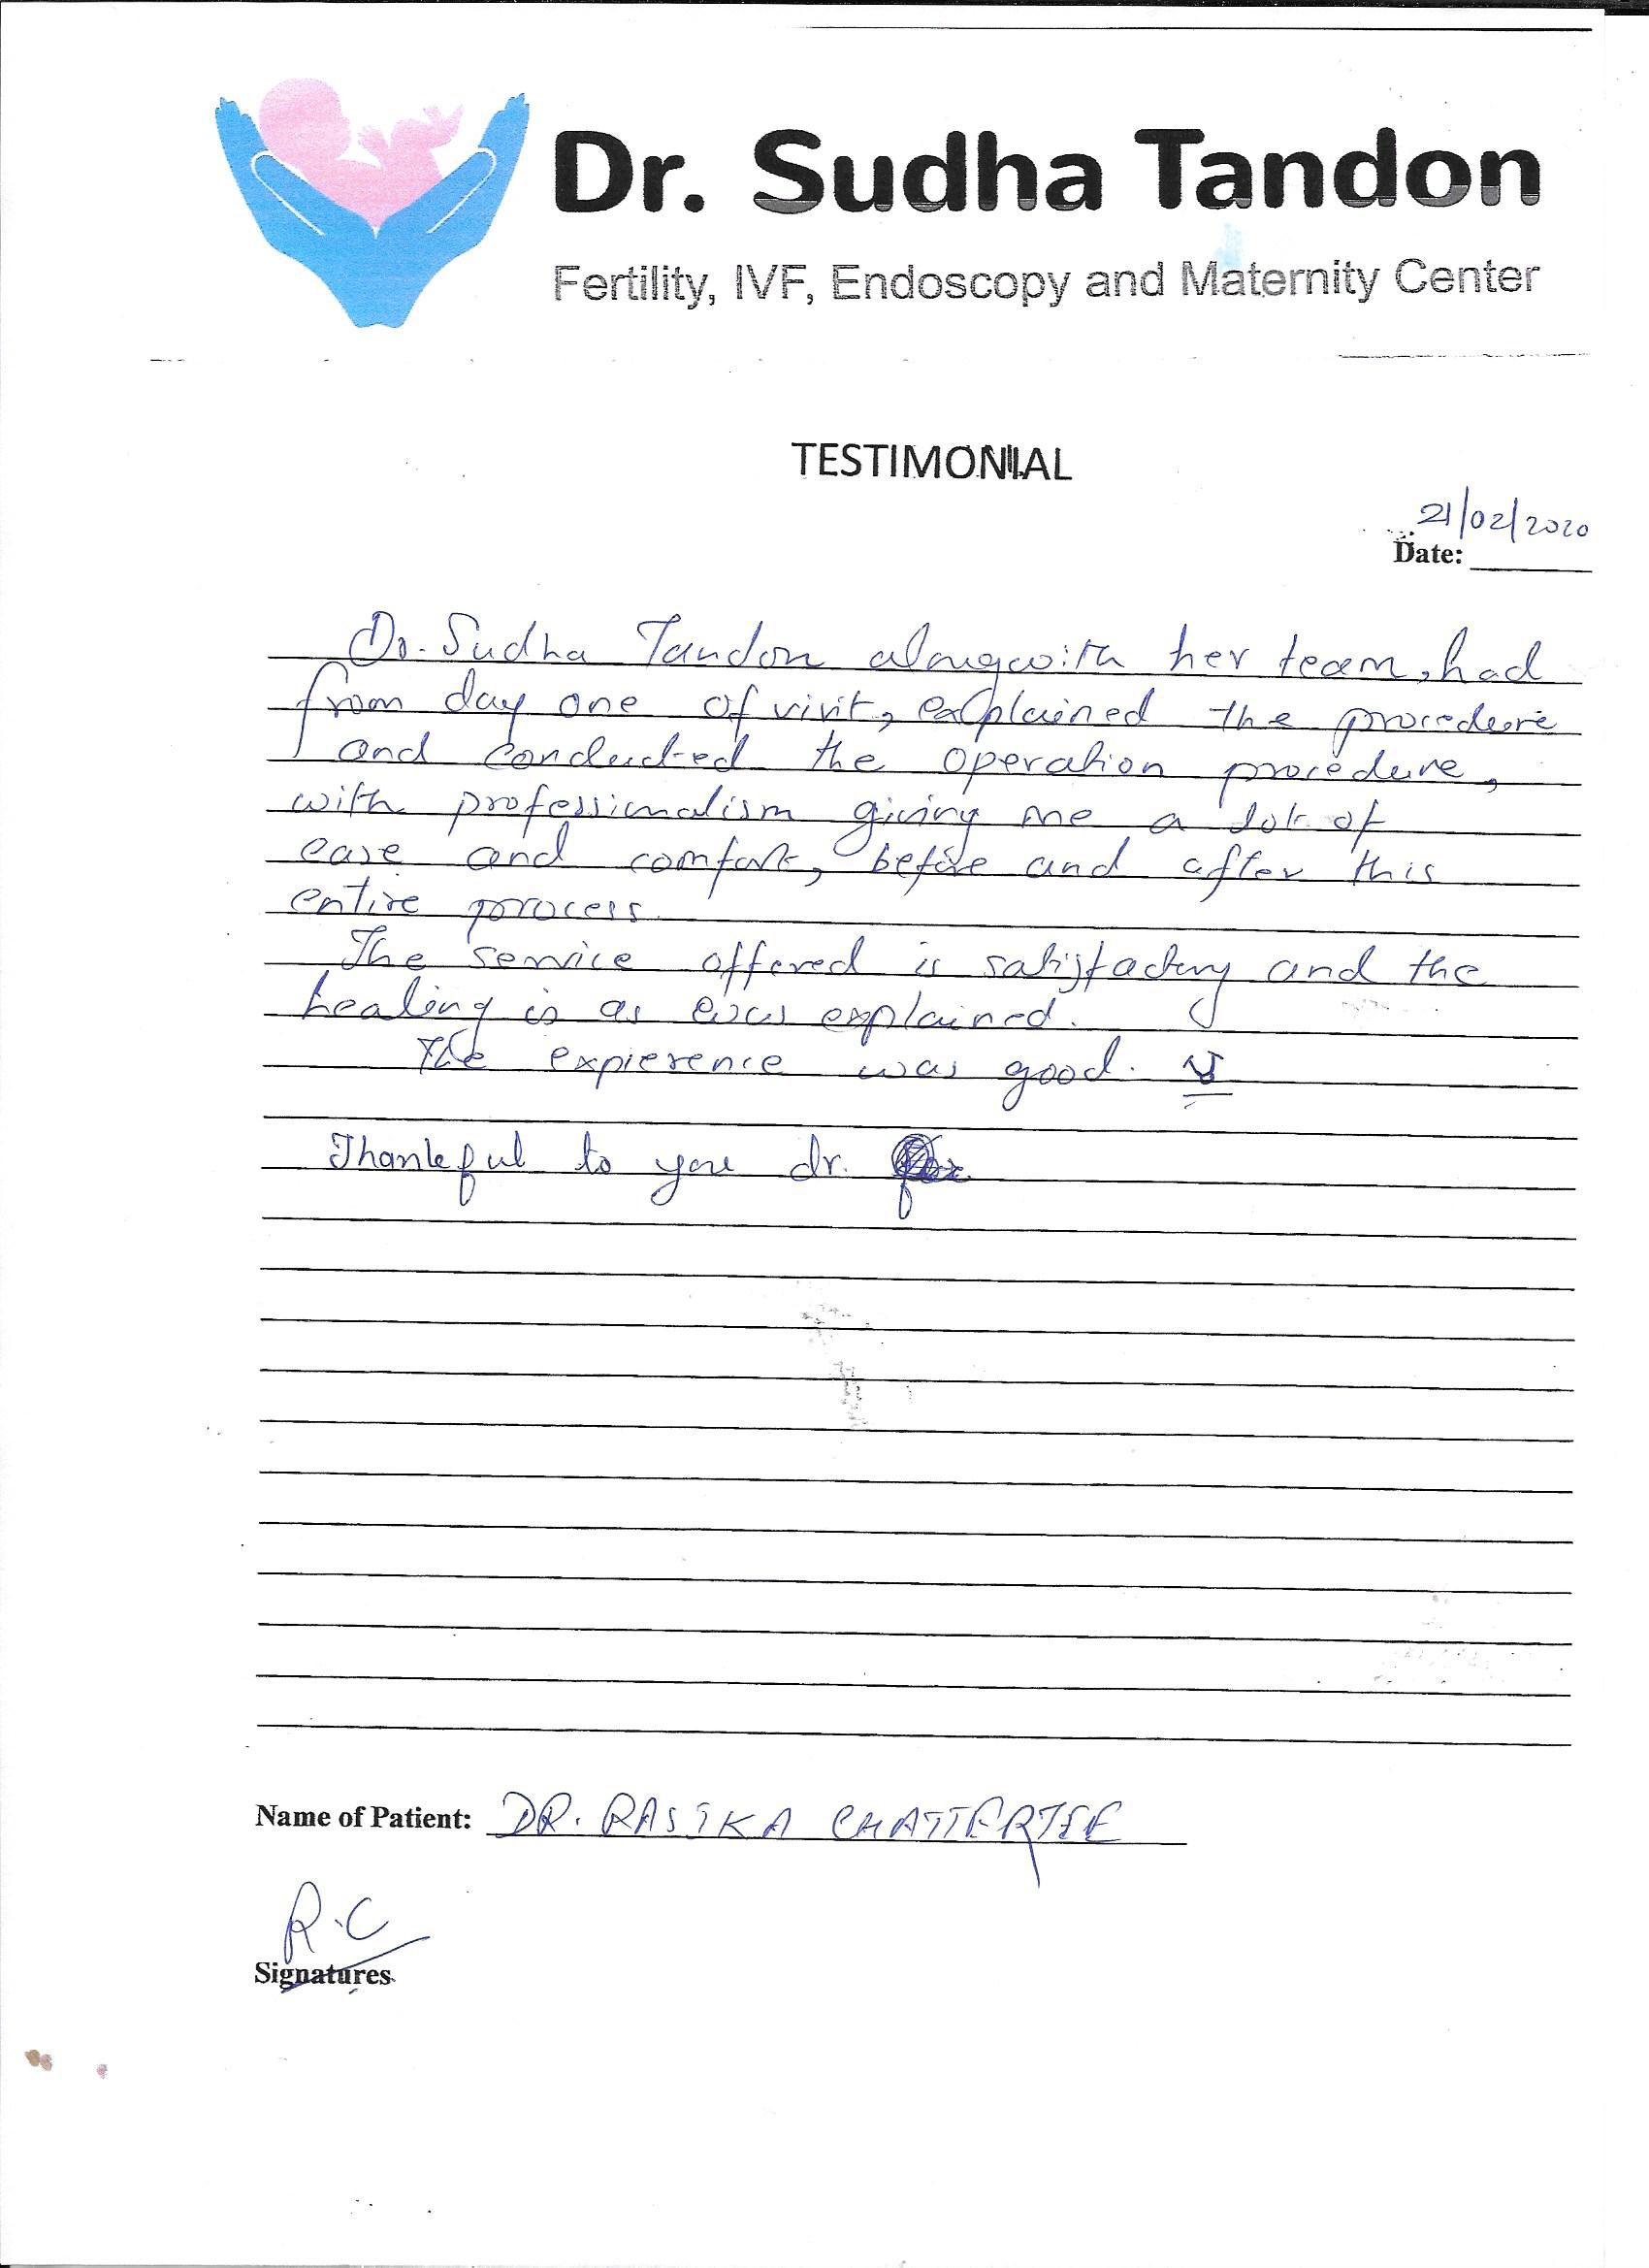 Dr. Sudha Tandon
Fertility, IVF, Endoscopy and Maternity Center
TESTIMONIAL
21/02/2020
Date:
Dr. Sudha Tandon alongwith her team, had
from day one of visit, explained the procedure
and conducted the operation procedure,
with professionalism giving me a lot of
ease and comfort, before and after this
entire process.
The service offered is satisfactory and the
healing is as was explained.
The expierence was good.
Thankful to you dr.
Name of Patient: DR. RASIKA CHATTERJEE
R.C
Signatures